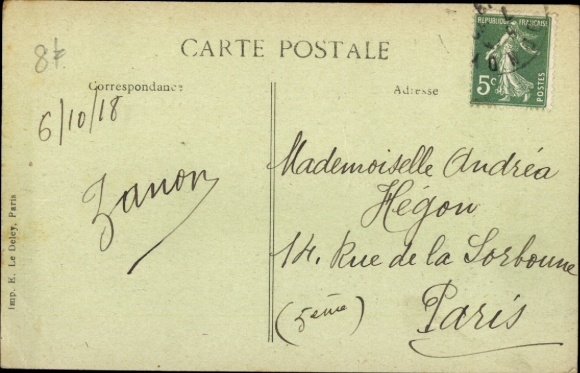 87
CARTE POSTALE
RÉPUBLIQUE FRANÇAISE
5c
POSTES
Correspondance
Adresse
6/10/18
Zanon
Mademoiselle Andréa
Hégon
14. Rue de la Sorbonne
(5ème)
Paris
Imp. E. Le Deley, Paris